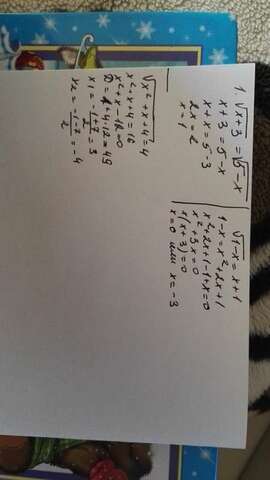 1. √x+3 = √5-x
x+3 = 5-x
x+x = 5-3
2x = 2
x = 1
√1-x = x+1
1-x = x²+2x+1
x²+2x+1-1+x=0
x²+3x=0
x(x+3)=0
x=0 или x=-3
√x²+x+4 = 4
x²+x+4=16
x²+x-12=0
D=1+4·12=49
x1 = -1+7/2 = 3
x2 = -1-7/2 = -4